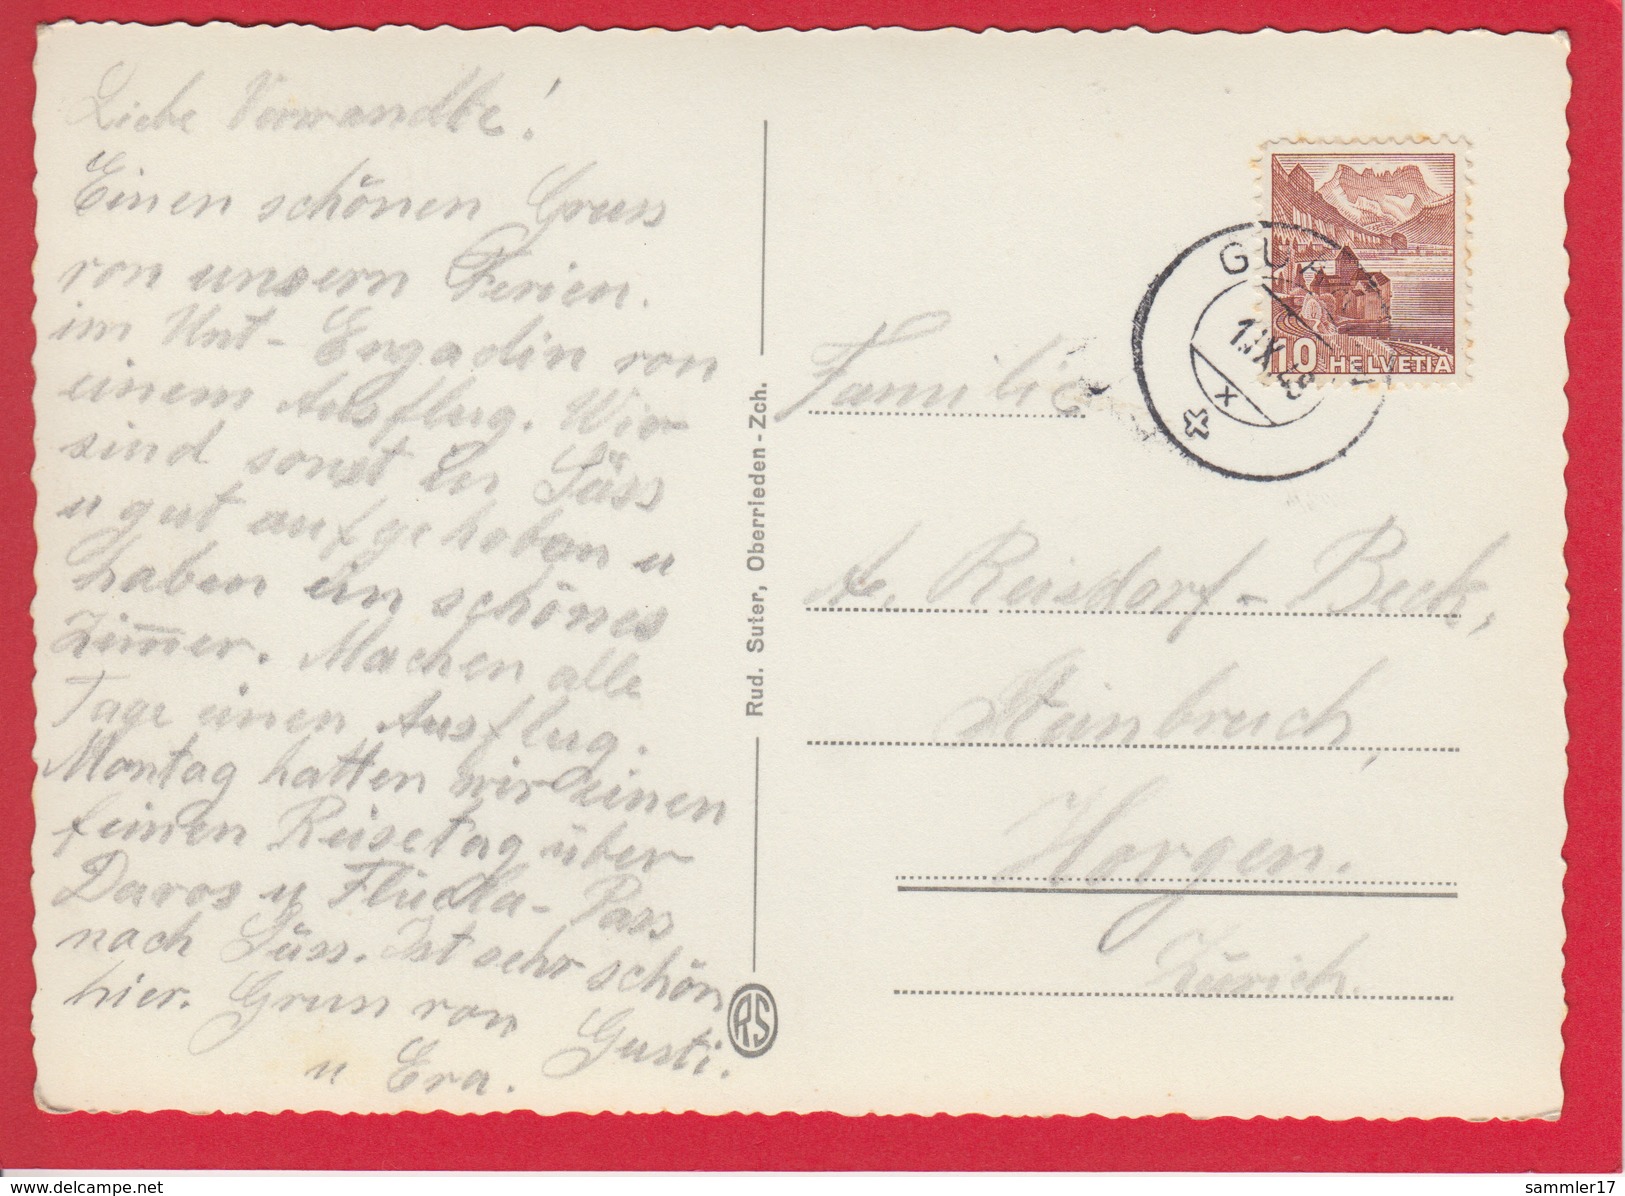 Liebe Verwandte!
Einen schönen Gruss
von unsern Ferien.
im Unt-Engadin von
einem Ausflug. Wir
sind sonst in Süss
u gut aufgehoben u
haben ein schönes
Zim̅er. Machen alle
Tage einen Ausflug.
Montag hatten wir einen
feinen Reisetag über
Davos u Flüela-Pass
nach Süss. Ist sehr schön
hier. Gruss von Gusti.
u Eva.
Rud. Suter, Oberrieden-Zch.
RS
GUA
IX 48
X
10 HELVETIA
Familie
A. Reisdorf-Beck,
Steinbruch,
Horgen.
Zürich.
delcampe.net
sammler17